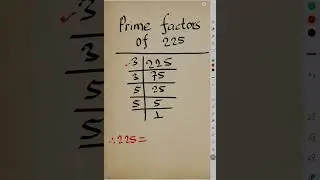 Prime factors
of 225
3 | 225
3 | 75
5 | 25
5 | 5
1
∴ 225 =